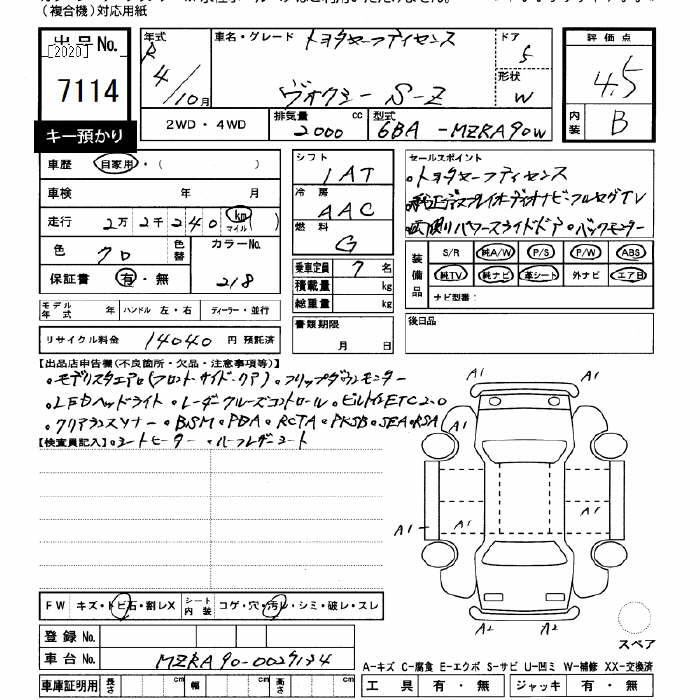 （複合機）対応用紙
出品No.
[2020]
7114
キー預かり
年式
R4/10月
車名・グレード トヨタセーフティセンス
ヴォクシー S-Z
ドア
5
形状
W
評価点
4.5
内装
B
2WD・4WD
排気量
2000 cc
型式
6BA-MZRA90W
車歴 自家用・（ ）
車検 年 月
走行 2万2千240 km マイル ( )
色 クロ
色替
カラーNo.
218
保証書 有・無
シフト
IAT
冷房
AAC
燃料
G
乗車定員 7 名
積載量 kg
総重量 kg
セールスポイント
・トヨタセーフティセンス
・純正ディスプレイオーディオナビ・フルセグTV
・両側パワースライドドア・バックモニター
装備品
S/R 純A/W P/S P/W ABS
純TV 純ナビ 革シート 外ナビ エアB
ナビ型番：
モデル年式 年 ハンドル 左・右 ディーラー・並行
書類期限
月 日
後日品
リサイクル料金 14040 円 預託済
【出品店申告欄(不良箇所・欠品・注意事項等)】
・モデリスタエアロ(フロント・サイド・リア)・フリップダウンモニター
・LEDヘッドライト・レーダークルーズコントロール・ビルトインETC2.0
・クリアランスソナー・BSM・PDA・RCTA・PKSB・SEA・RSA
【検査員記入】・シートヒーター・ハーフレザーシート
A1 A1
A1 A1
A1 A1 A1
A2 A2
スペア
FW キズ・トビ石・割レX シート内装 コゲ・穴・汚レ・シミ・破レ・スレ
登録No.
車台No. MZRA90-0027134
A-キズ C-腐食 E-エクボ S-サビ U-凹ミ W-補修 XX-交換済
車庫証明用 長さ cm 幅 cm 高さ cm
工具 有・無 ジャッキ 有・無